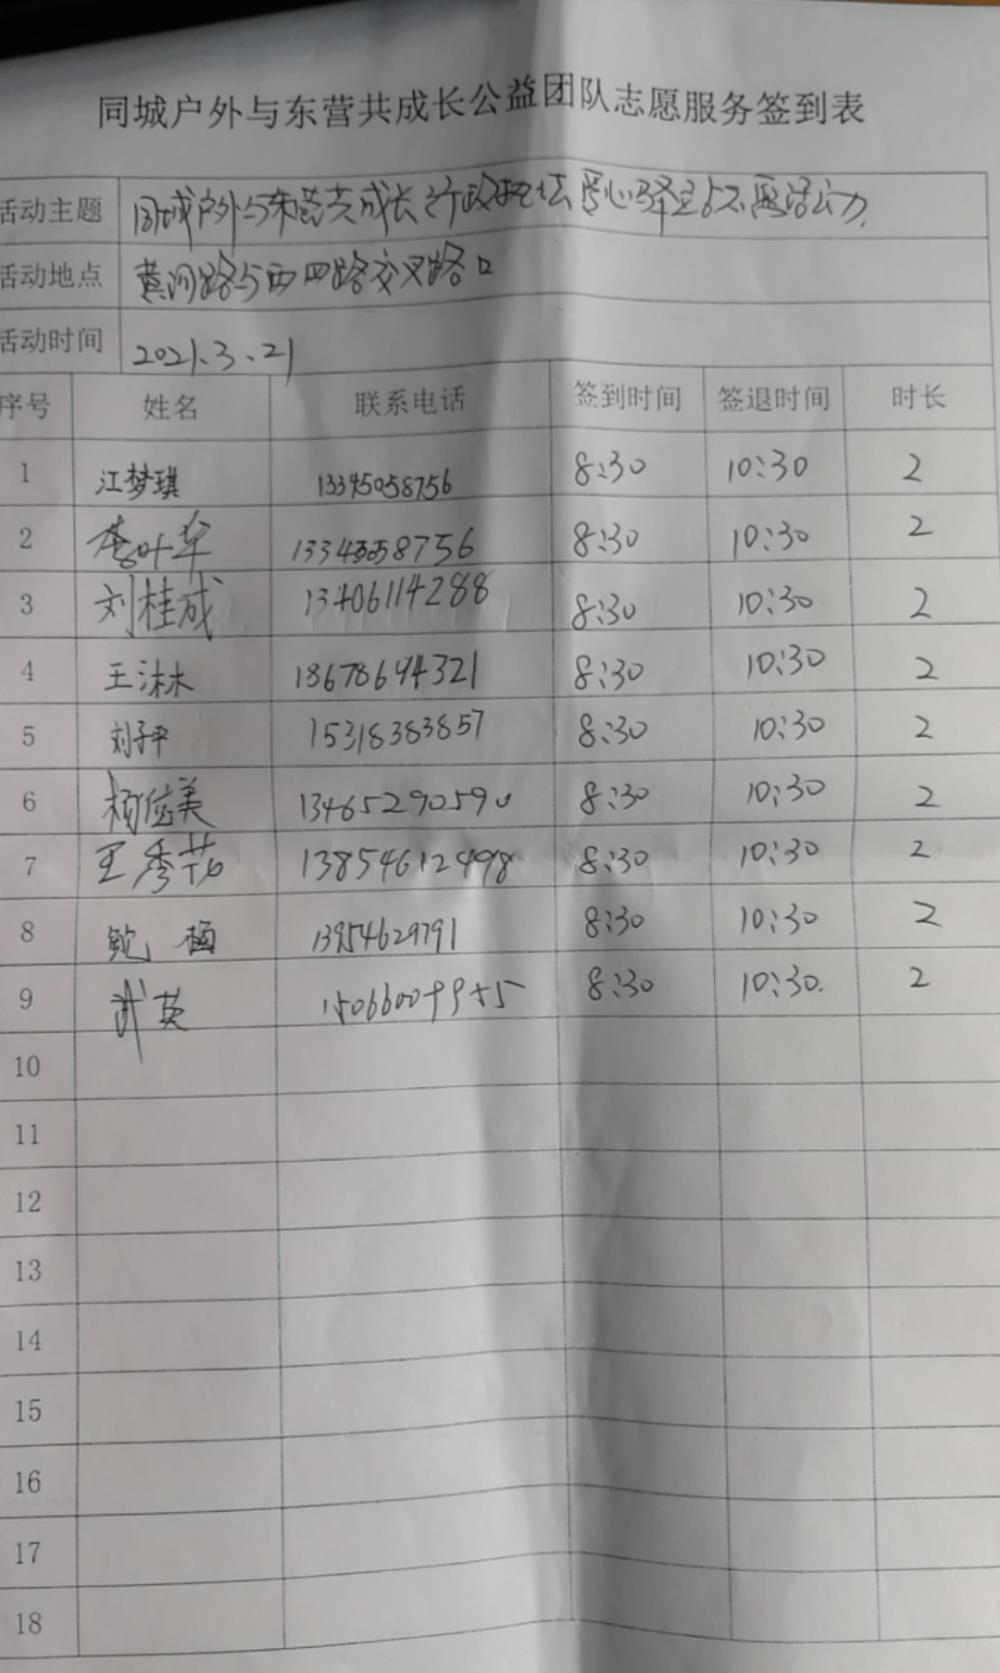 同城户外与东营共成长公益团队志愿服务签到表
活动主题 同城户外与东营共成长行政 爱心驿站志愿活动
活动地点 黄河路与西四路交叉路口
活动时间 2021.3.21
序号 姓名 联系电话 签到时间 签退时间 时长
1 江梦琪 13345058756 8:30 10:30 2
2 李叶华 13345058756 8:30 10:30 2
3 刘桂成 13406114288 8:30 10:30 2
4 王沐林 18678694321 8:30 10:30 2
5 刘子平 15318383857 8:30 10:30 2
6 杨位美 13465290590 8:30 10:30 2
7 王秀花 13854612498 8:30 10:30 2
8 鲍 13954629791 8:30 10:30 2
9 武英 8:30 10:30. 2
10
11
12
13
14
15
16
17
18